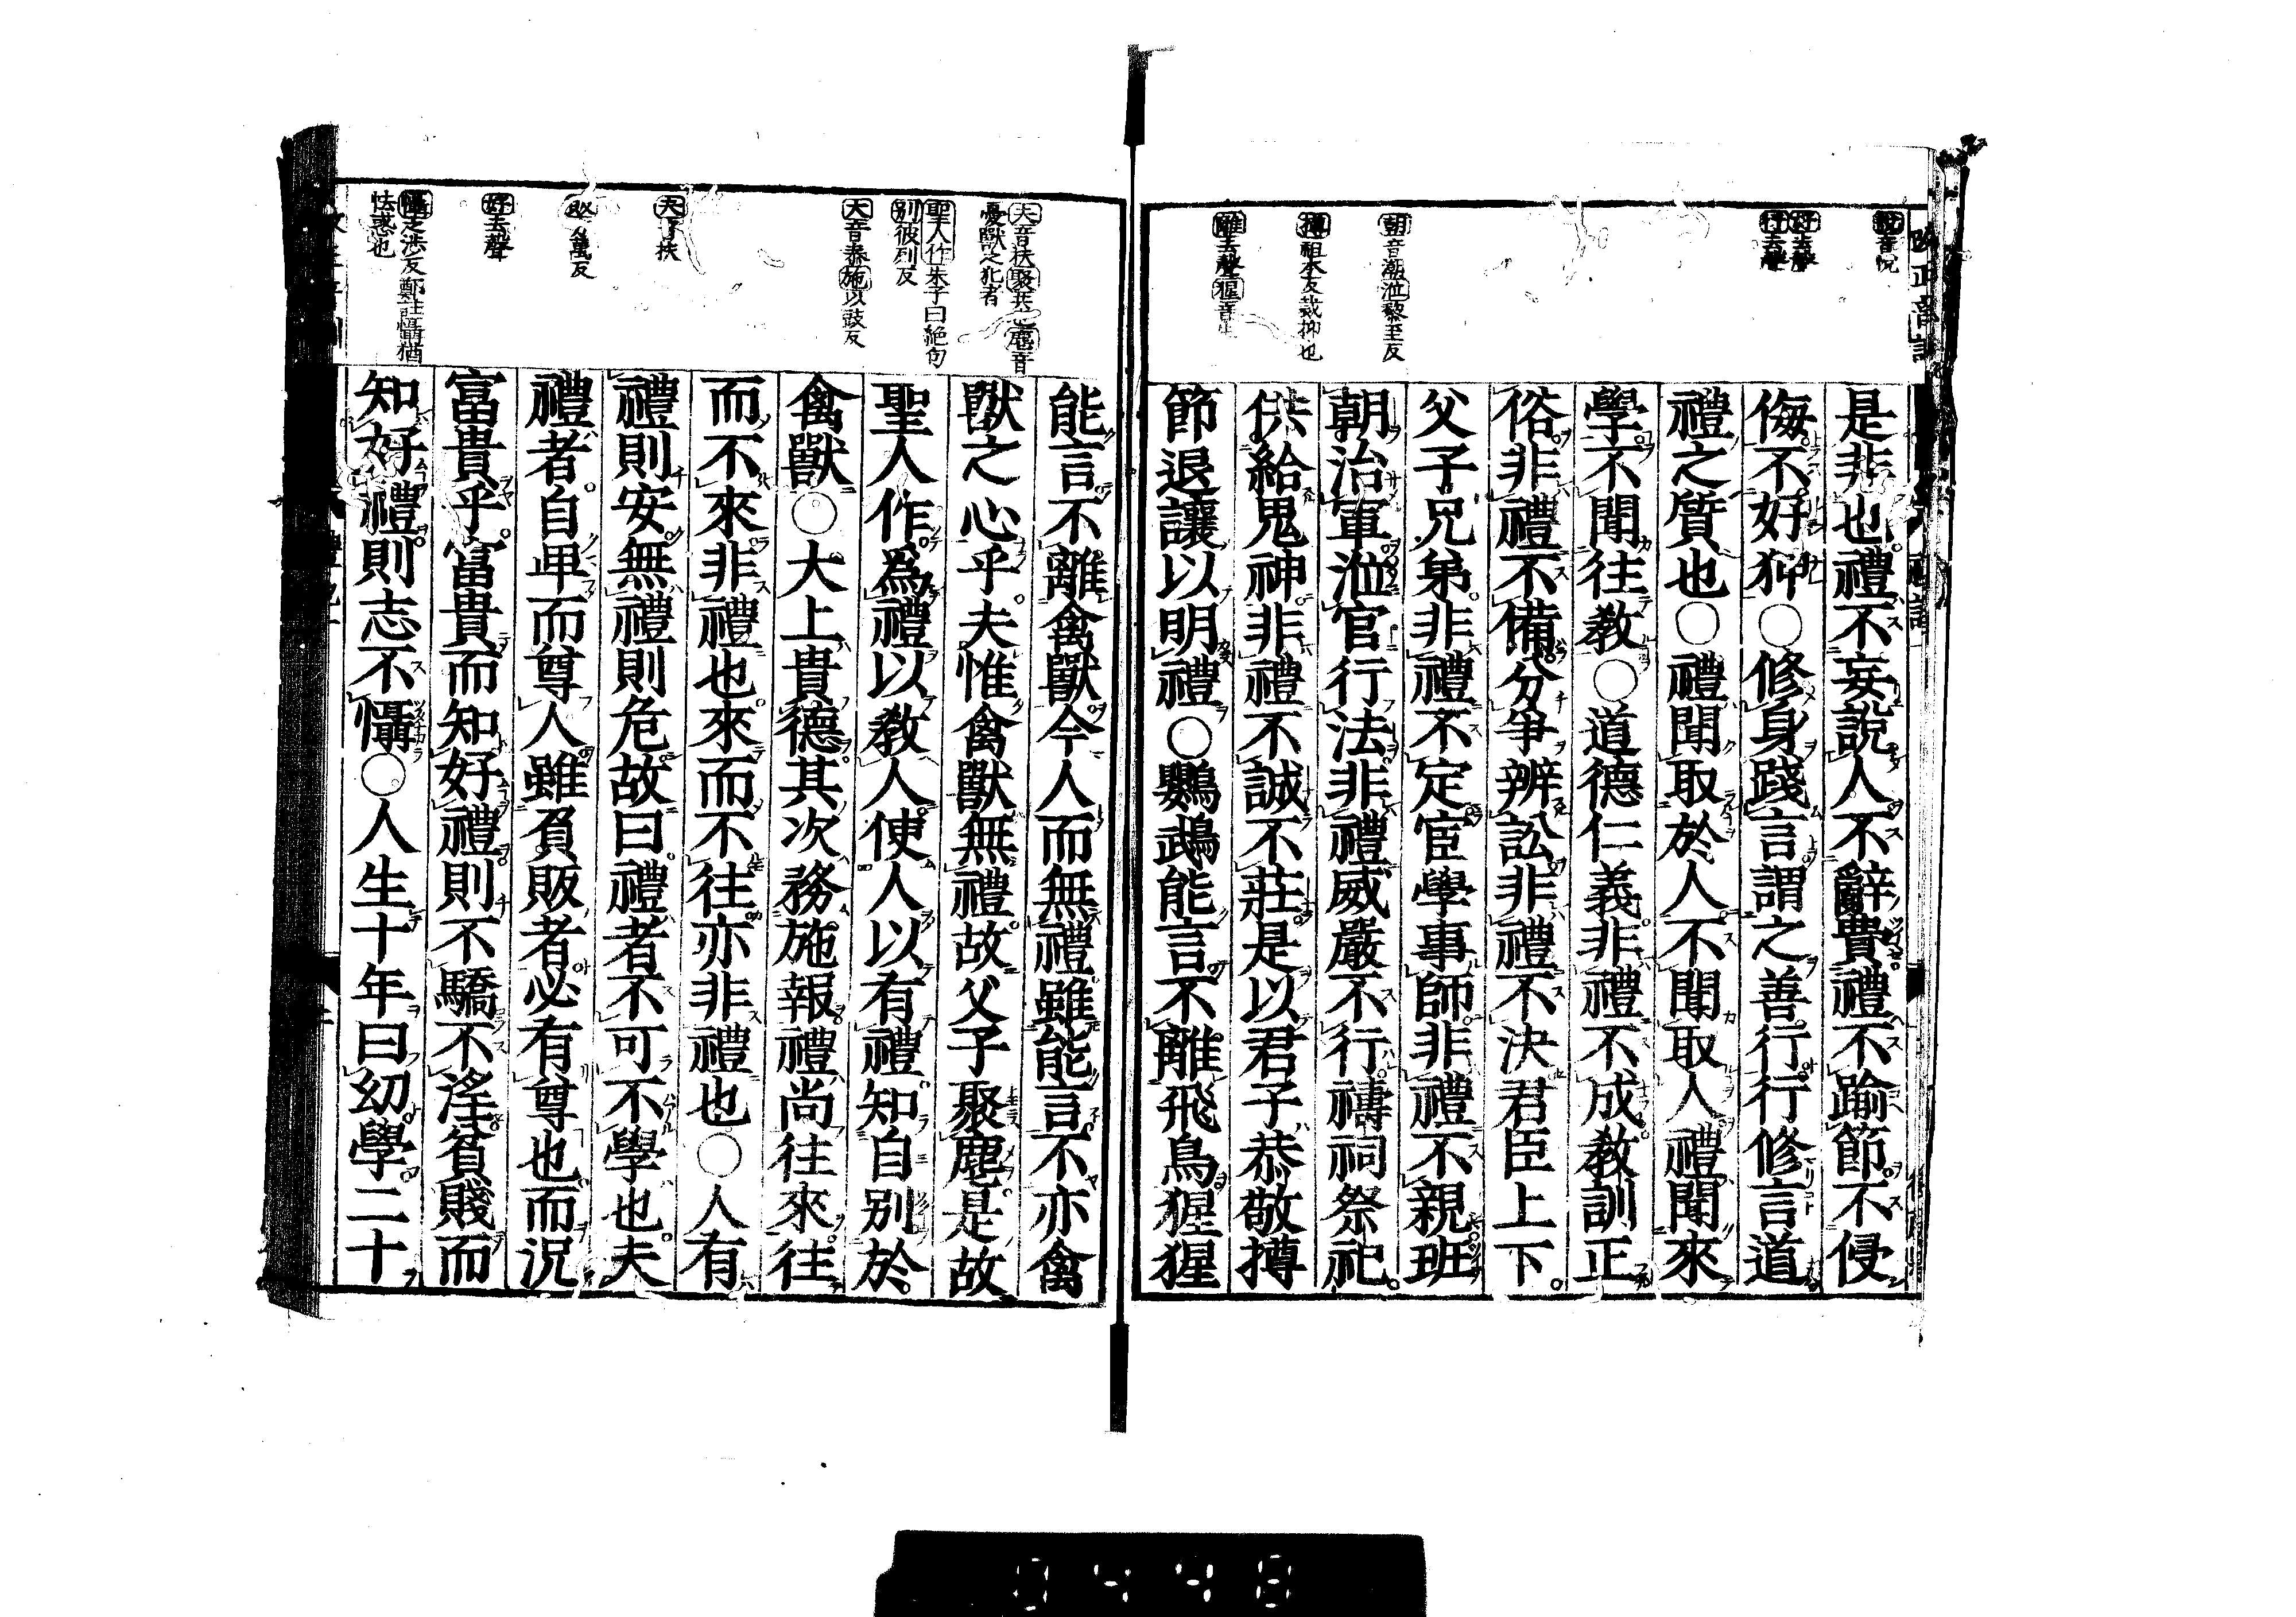 說音悅
好去聲
行去聲
朝音潮涖黎至反
撙祖本反裁抑也
離去聲猩音生
是非也禮不妄說人不辭費禮不踰節不侵
侮不好狎〇修身踐言謂之善行行修言道
禮之質也〇禮聞取於人不聞取人禮聞來
學不聞往教〇道德仁義非禮不成教訓正
俗非禮不備分爭辨訟非禮不決君臣上下
父子兄弟非禮不定宦學事師非禮不親班
朝治軍涖官行法非禮威嚴不行禱祠祭祀
供給鬼神非禮不誠不莊是以君子恭敬撙
節退讓以明禮〇鸚鵡能言不離飛鳥猩猩
夫音扶聚共也麀音
憂獸之牝者
聖人作朱子曰絶句
別彼列反
大音泰施以豉反
好去聲
懾之涉反鄭註懾猶
怯惑也
能言不離禽獸今人而無禮雖能言不亦禽
獸之心乎夫惟禽獸無禮故父子聚麀是故
聖人作爲禮以教人使人以有禮知自別於
禽獸〇大上貴德其次務施報禮尚往來往
而不來非禮也來而不往亦非禮也〇人有
禮則安無禮則危故曰禮者不可不學也夫
禮者自卑而尊人雖負販者必有尊也而況
富貴乎富貴而知好禮則不驕不淫貧賤而
知好禮則志不懾〇人生十年曰幼學二十